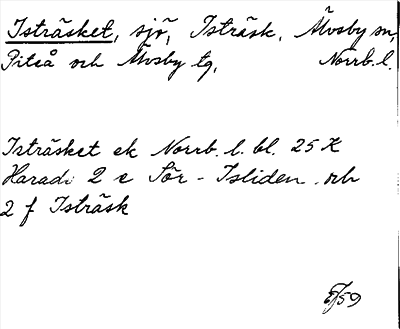 Isträsket, sjö, Isträsk, Älvsby sn,
Piteå och Älvsby tg, Norrb. l.
Isträsket ek Norrb. l. bl. 25 K
Harads 2 e Sör-Isliden och
2 f Isträsk
59